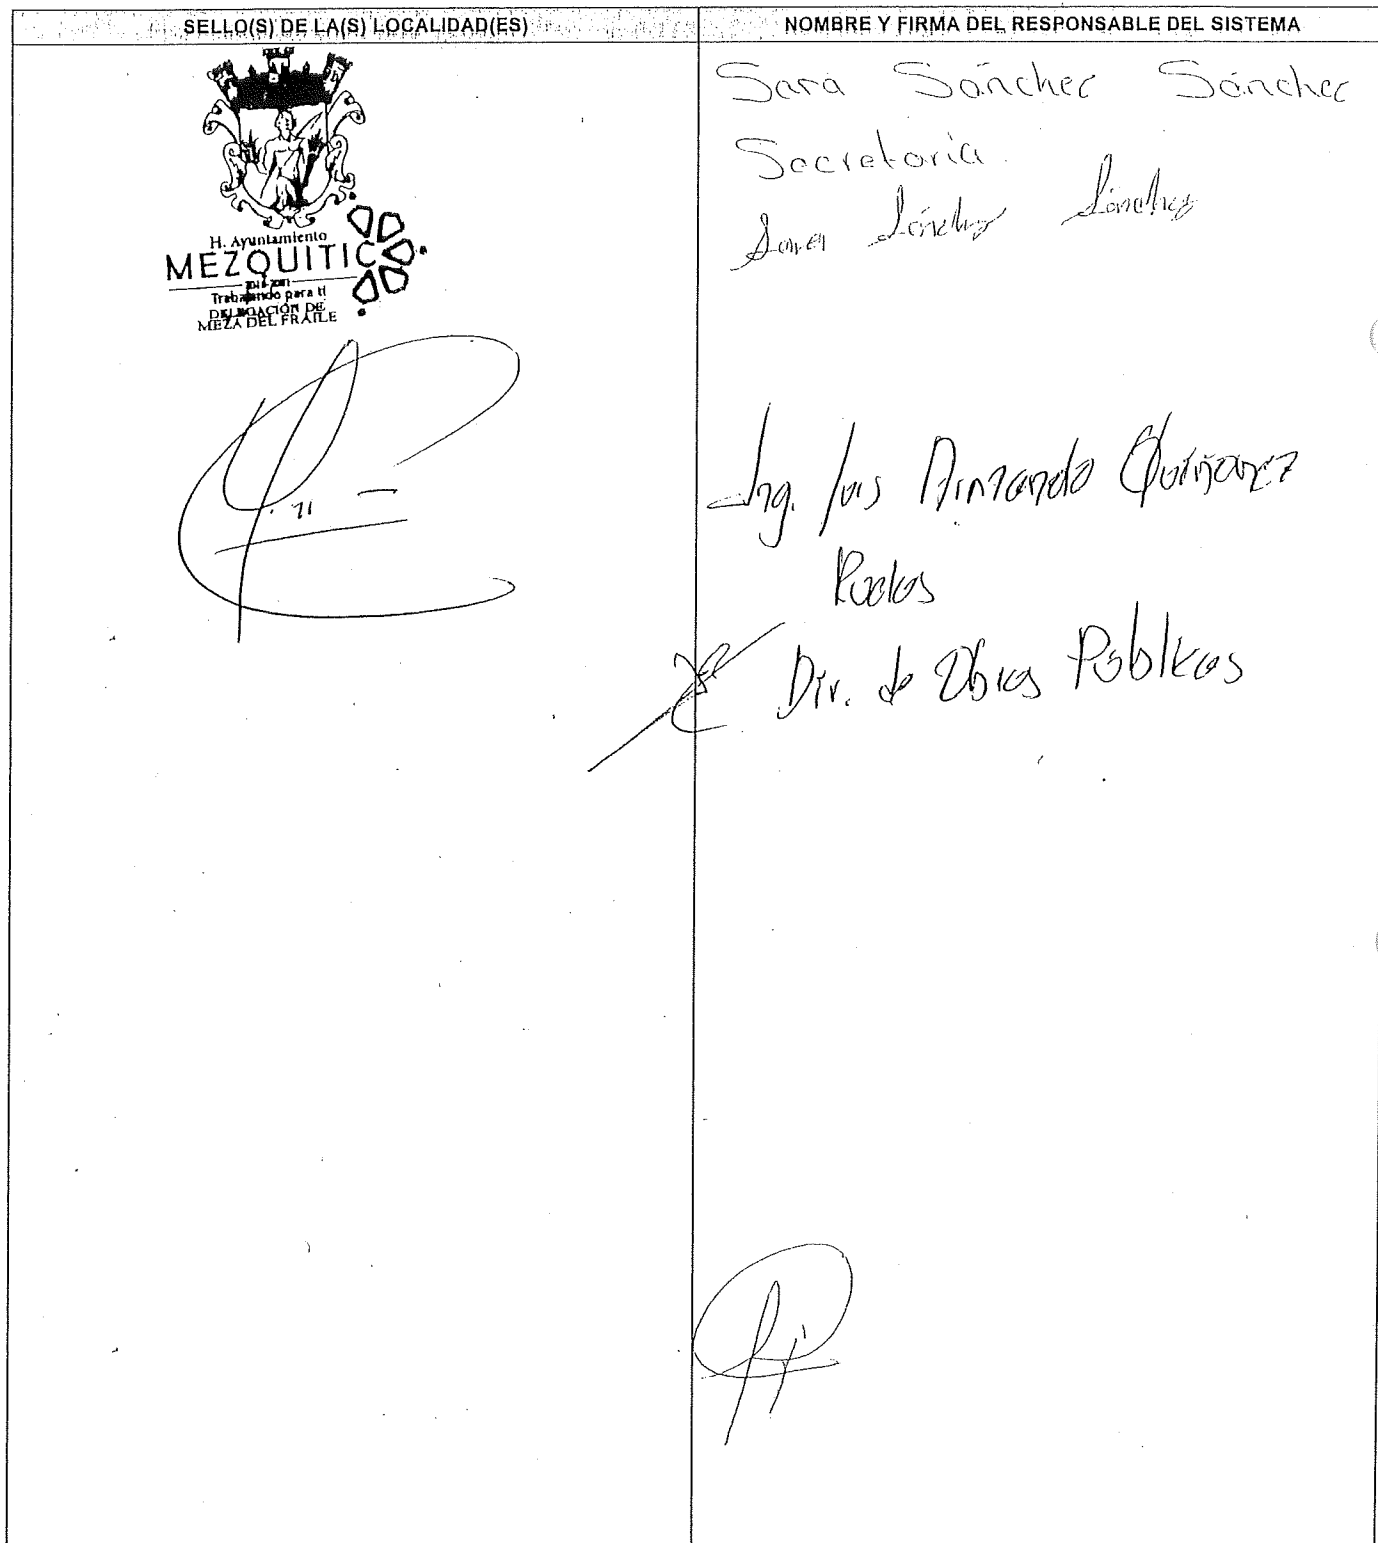 SELLO(S) DE LA(S) LOCALIDAD(ES)
H. Ayuntamiento
MEZQUITIC
Trabajando para ti
DELEGACIÓN DE
MEZA DEL FRAILE
NOMBRE Y FIRMA DEL RESPONSABLE DEL SISTEMA
Sara Sánchez Sánchez
Secretaria
Sara Sánchez Sánchez
Ing. Luis Armando Quiñonez
Ruelas
Dir. de Obras Públicas